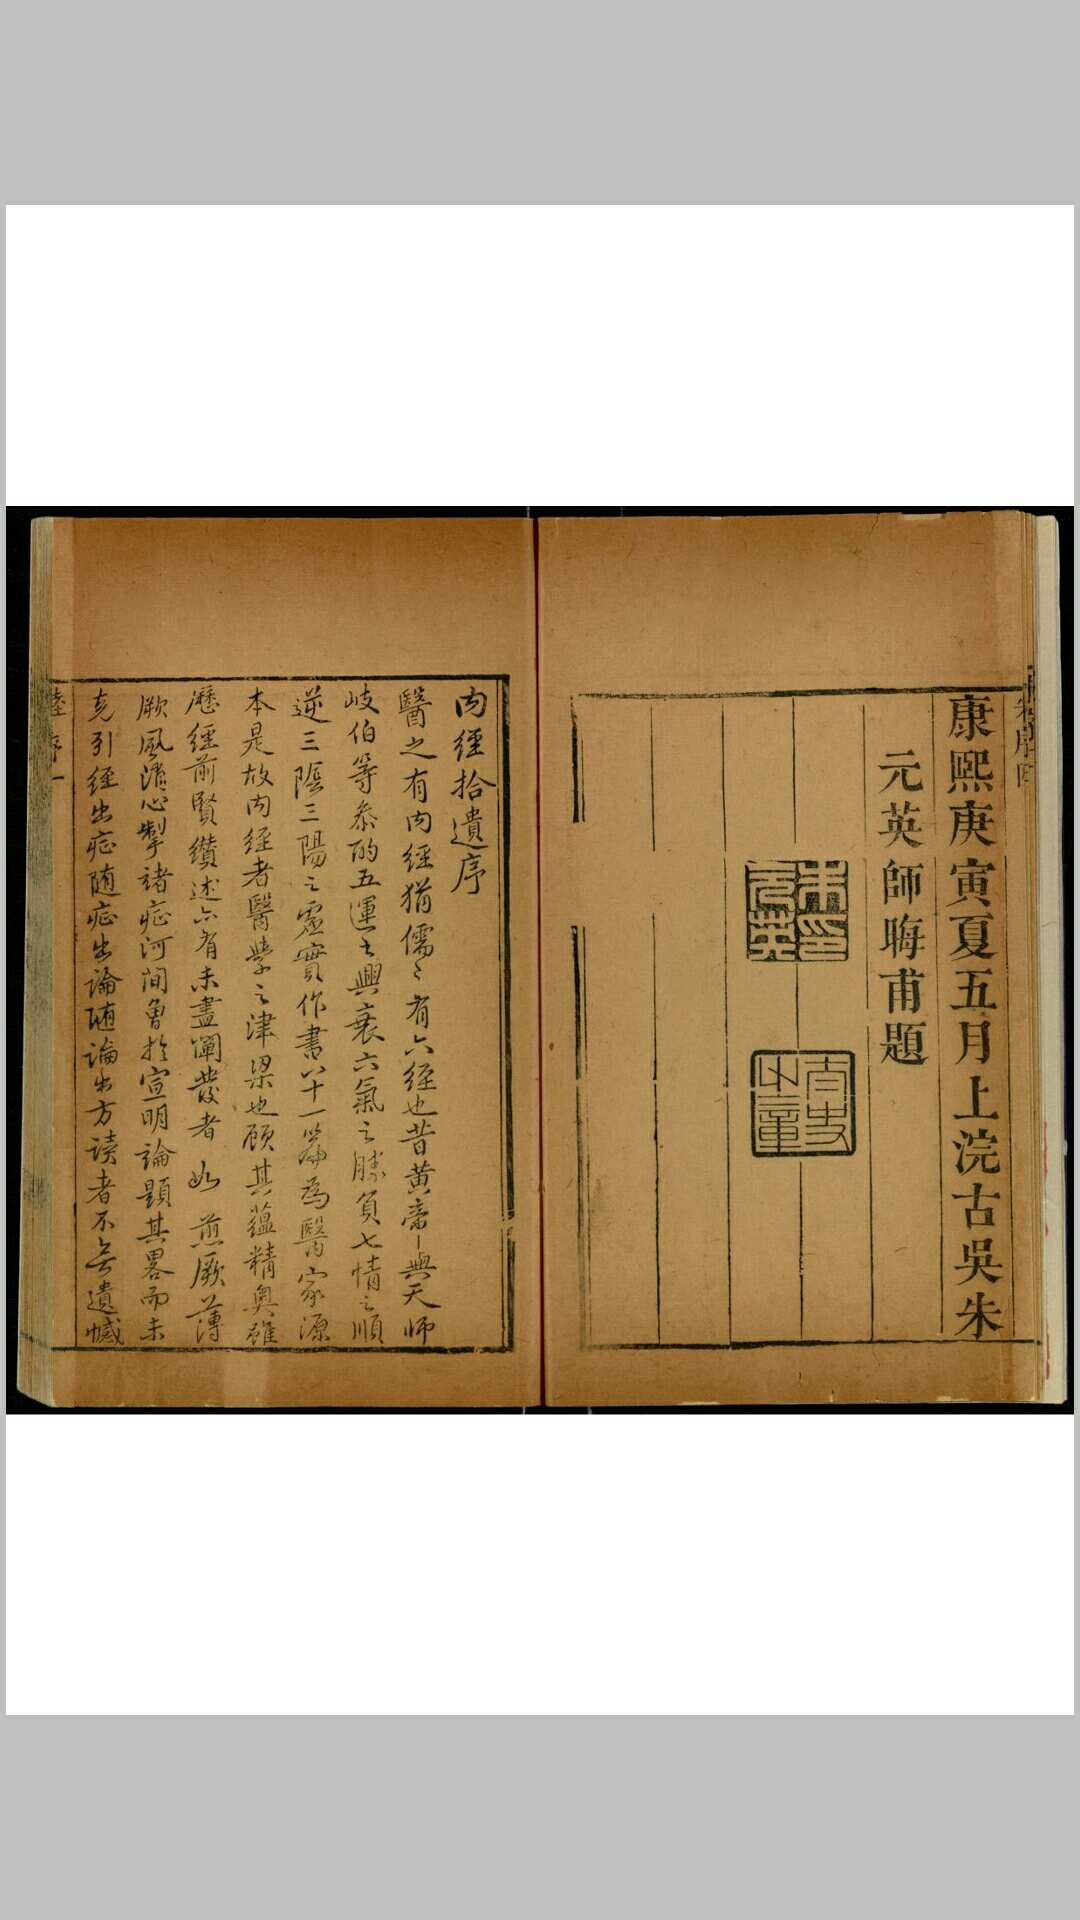 康熙庚寅夏五月上浣古吳朱
元英師晦甫題
朱印元英
內經拾遺序
醫之有內經猶儒〻有六經也昔黃帝與天師
岐伯等叅酌五運之興衰六氣之勝負七情之順
逆三陰三陽之虛實作書八十一篇為醫家源
本是故內經者醫學之津梁也顧其蘊精奧雖
歷經前賢纘述亦有未盡闡發者如煎厥薄
厥風消心掣諸症河間曾於宣明論顯其畧而未
克引經出症隨症出論隨論出方读者不無遺憾